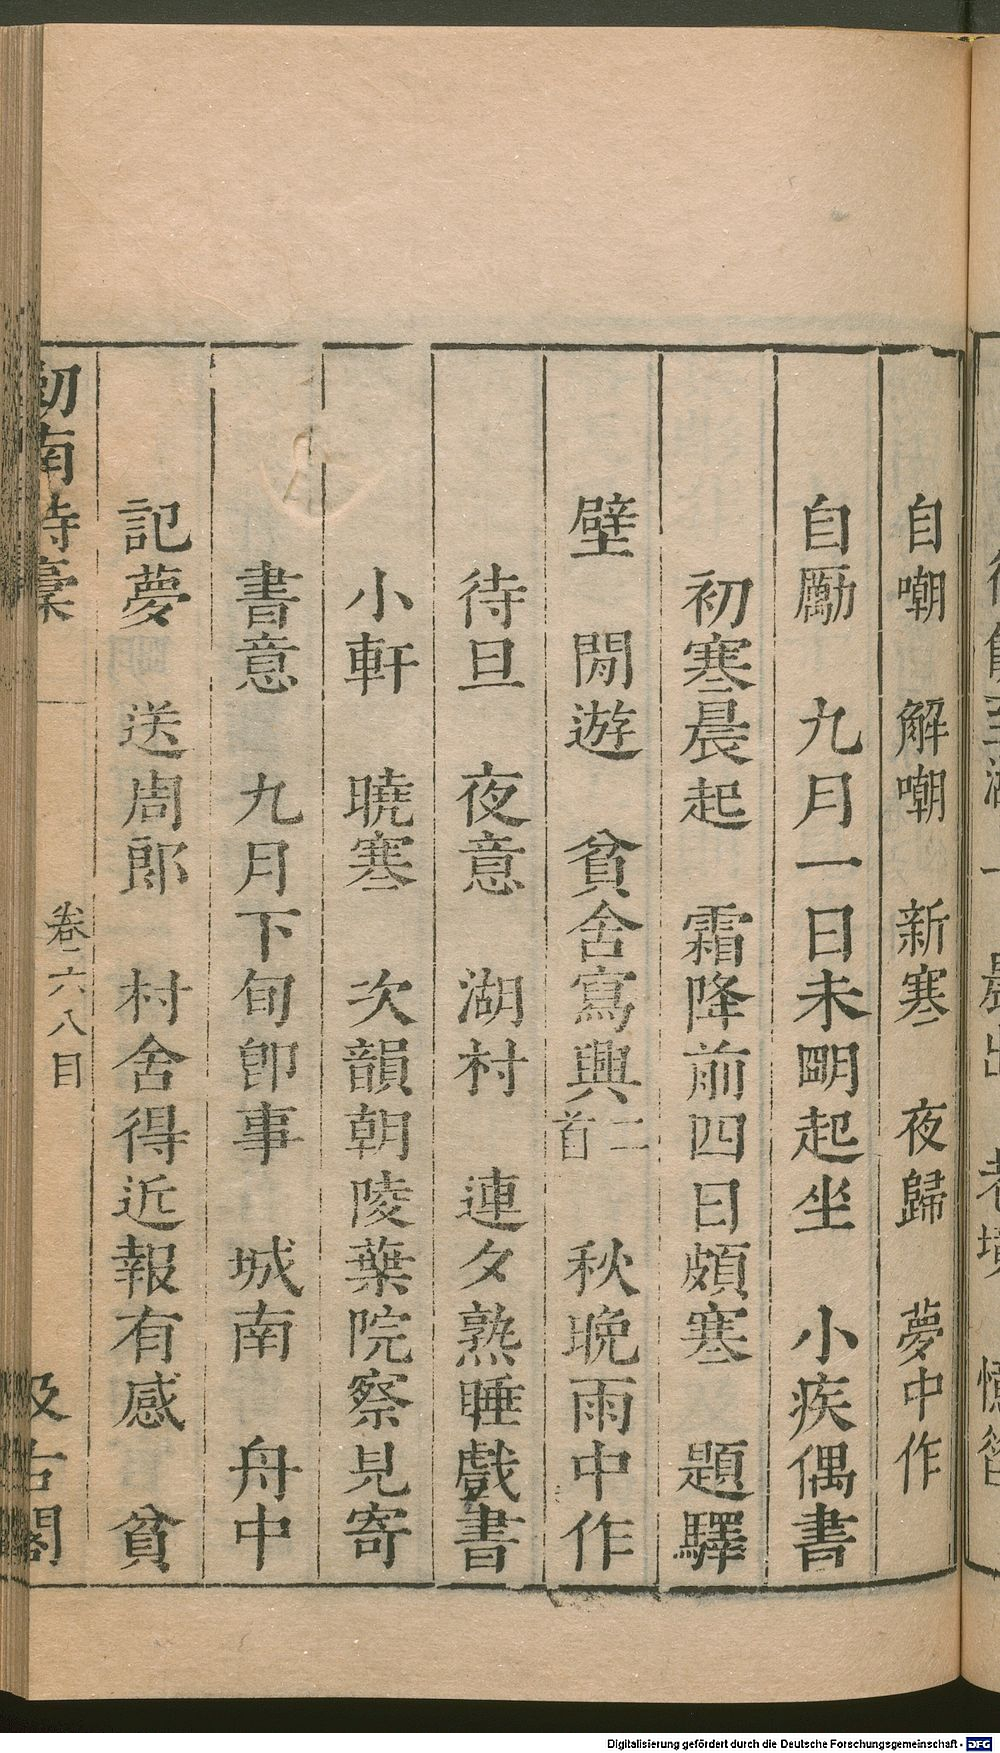 自嘲　解嘲　新寒　夜歸　夢中作
自勵　九月一日未明起坐　小疾偶書
初寒晨起　霜降前四日頗寒　題驛
壁　閒遊　貧舍寓興二首　秋晚雨中作
待旦　夜意　湖村　連夕熟睡戲書
小軒　曉寒　次韻朝陵葉院察見寄
書意　九月下旬卽事　城南　舟中
記夢　送周郎　村舍得近報有感　貧
劒南詩稾　卷六八目　汲古閣
Digitalisierung gefördert durch die Deutsche Forschungsgemeinschaft - DFG